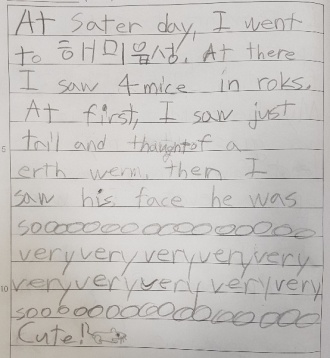 At Sater day, I went
to 해미읍성. At there
I saw 4 mice in roks.
At first, I saw just
tail and thaught of a
erth werm. then I
saw his face he was
sooooooooooooooooo
veryveryveryveryvery
veryveryveryveryvery
sooooooooooooooooo
Cute!